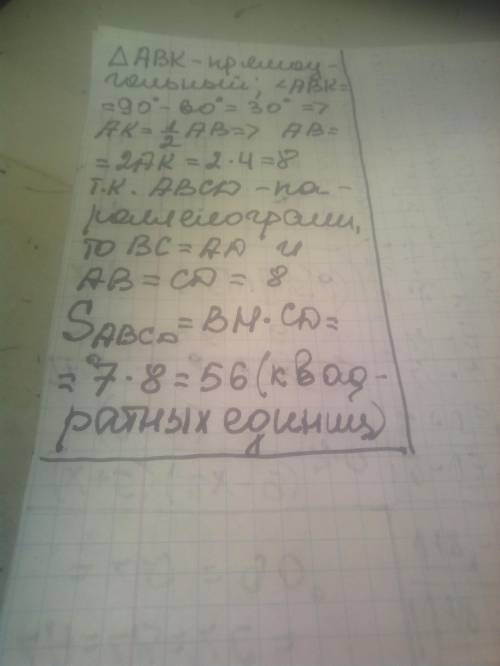 △ ABK - прямоу-
гольный; ∠ABK=
=90°-60°=30° =>
AK=1/2 AB=> AB=
=2AK=2·4=8
Т.К. ABCD -па-
раллелограмм,
то BC=AD и
AB=CD= 8
S_ABCD=BH·CD=
=7·8=56(квад-
ратных единиц)